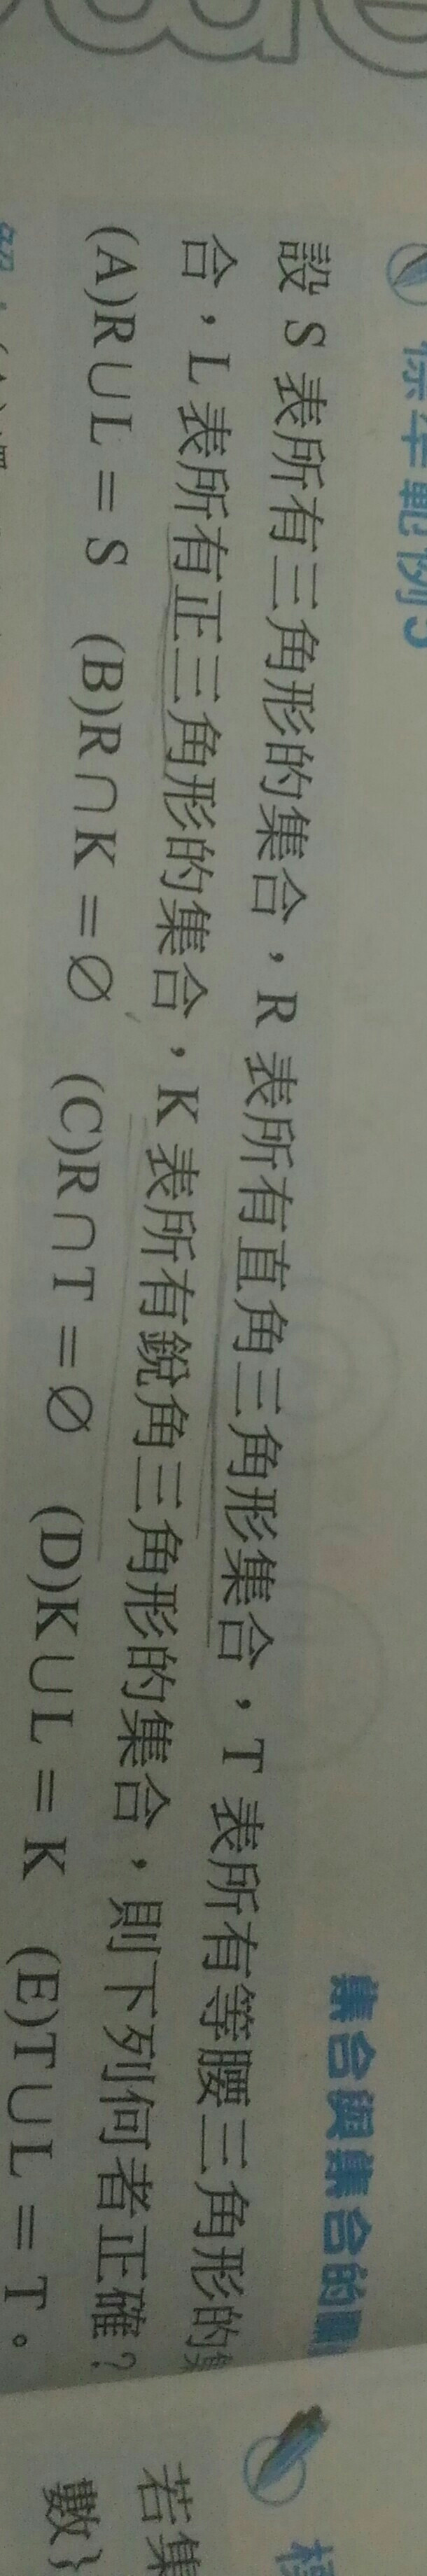 標準範例5 集合與集合的
設 S 表所有三角形的集合，R 表所有直角三角形集合，T 表所有等腰三角形的集
合，L 表所有正三角形的集合，K 表所有銳角三角形的集合，則下列何者正確？
(A)R∪L＝S (B)R∩K＝∅ (C)R∩T＝∅ (D)K∪L＝K (E)T∪L＝T。
若集
數}